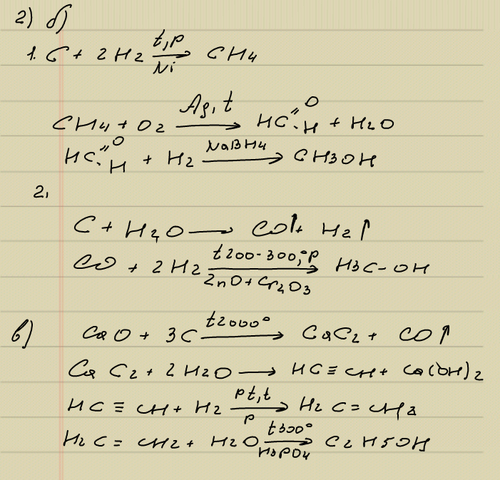 2) б)
1. C + 2H2 t,p → Ni CH4
CH4 + O2 Ag, t → HC=O H + H2O
HC=O H + H2 NaBH4 → CH3OH
2.
C + H2O → CO↑ + H2↑
CO + 2H2 t200-300,°p → ZnO + Cr2O3 H3C-OH
в) CaO + 3C t2000° → CaC2 + CO↑
CaC2 + 2H2O → HC≡CH + Ca(OH)2
HC≡CH + H2 pt,t → p H2C=CH2
H2C=CH2 + H2O t300° → H3PO4 C2H5OH